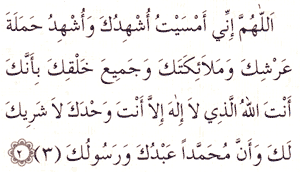 اَللّٰهُمَّ إِنِّي أَمْسَيْتُ أُشْهِدُكَ وَأُشْهِدُ حَمَلَةَ
عَرْشِكَ وَمَلاَئِكَتَكَ وَجَمِيعَ خَلْقِكَ بِأَنَّكَ
أَنْتَ اللهُ الَّذِي لاَ إِلٰهَ إِلاَّ أَنْتَ وَحْدَكَ لاَ شَرِيكَ
لَكَ وَأَنَّ مُحَمَّداً عَبْدُكَ وَرَسُولُكَ (٣) ٢